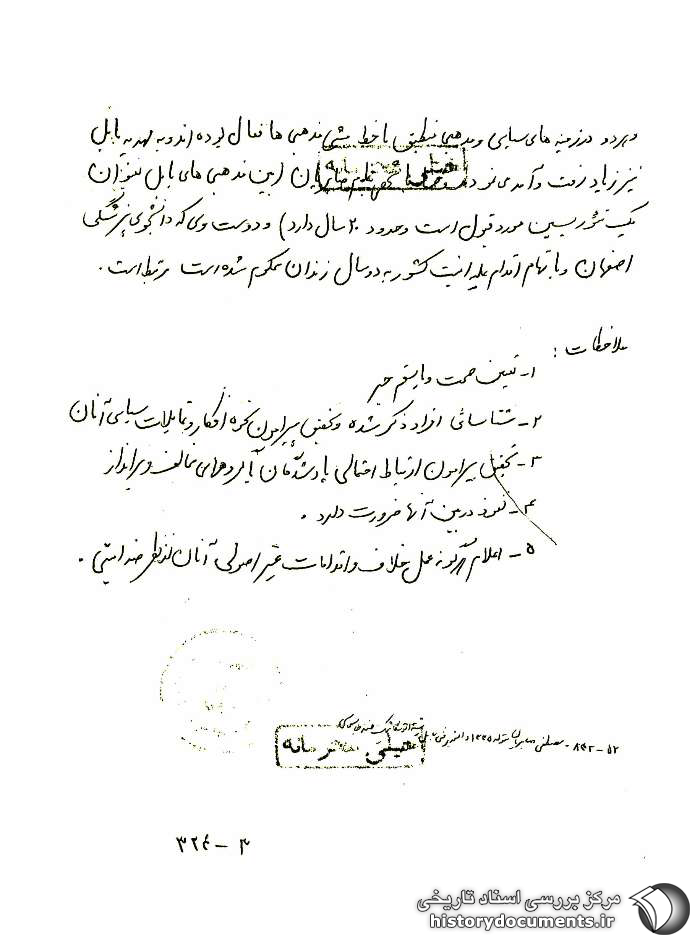 و هر دو در زمینه های سیاسی و مذهبی منطبق با خط مشی مذهبی ها فعال بوده اند و به بابل
نیز زیاد رفت و آمد می نمودند (بین مذهبی های بابل بعنوان
خیلی محرمانه
یک تئوریسین مورد قبول است و حدود ۲۰ سال دارد) و دوست وی که دانشجوی پزشکی
اصفهان و باتهام اقدام علیه امنیت کشور به دو سال زندان محکوم شده است مرتبط است.
ملاحظات:
۱- تعیین صحت و یا سقم خبر
۲- شناسائی افراد ذکر شده و تحقیق پیرامون نحوه افکار و تمایلات سیاسی آنان
۳- تحقیق پیرامون ارتباط احتمالی یادشدگان با گروههای مخالف و برانداز
۴- نفوذ در بین آنها ضرورت دارد.
۵- اعلام هرگونه عمل خلاف و اقدامات غیر اصولی آنان از نظر ضد امنیتی.
۵۲-۸۵۲- مصطفی متولد ۱۳۳۵
خیلی محرمانه
۳-۳۲۴
مرکز بررسی اسناد تاریخی
historydocuments.ir